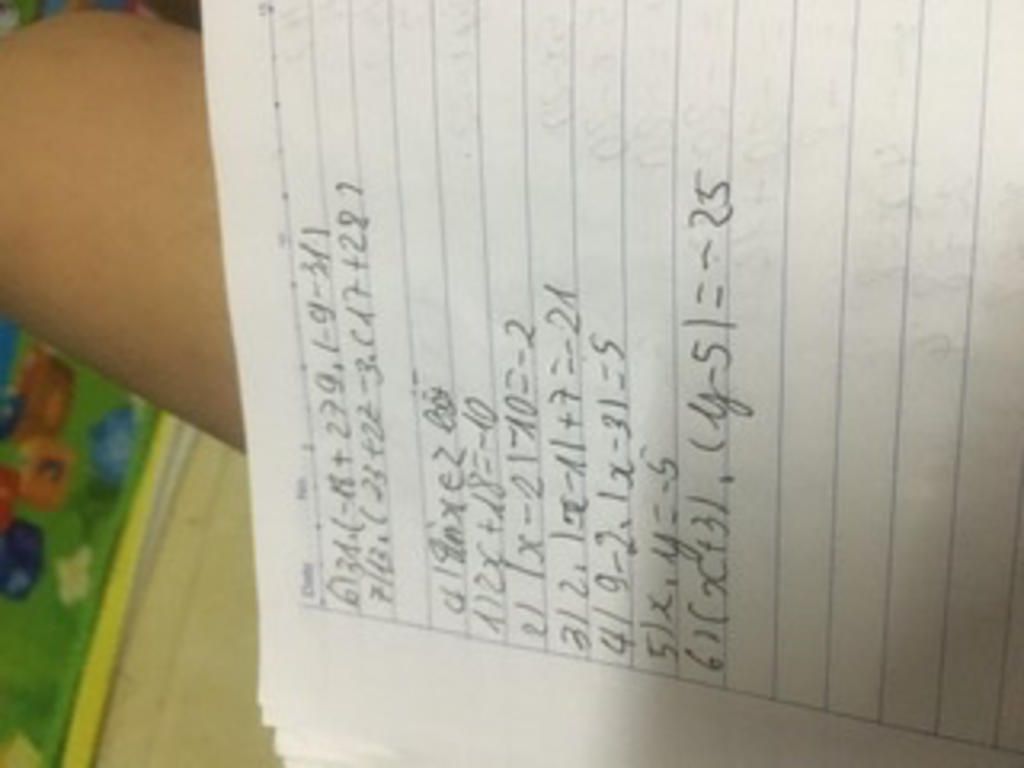 Date No.
6) 31.(-18)+279.(-9-31)
7) 12.(23+22-3.(17+28)
a) Tìm x ∈ Z
1) 2x+18=-10
2) |x-2|-10=-2
3) 2.|x-1|+7=-21
4) 9-2.|x-3|=5
5) x.y=-5
6) (x+3).(y-5)=-25